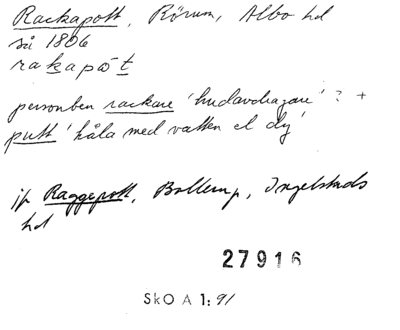 Rackapott, Rörum, Albo hd
så 1806
rakapȯt
personben rackare 'hudavdragare' ? +
putt 'håla med vatten el dy'
jfr Raggepott, Bollerup, Ingelstads
hd
27916
SkO A 1:91